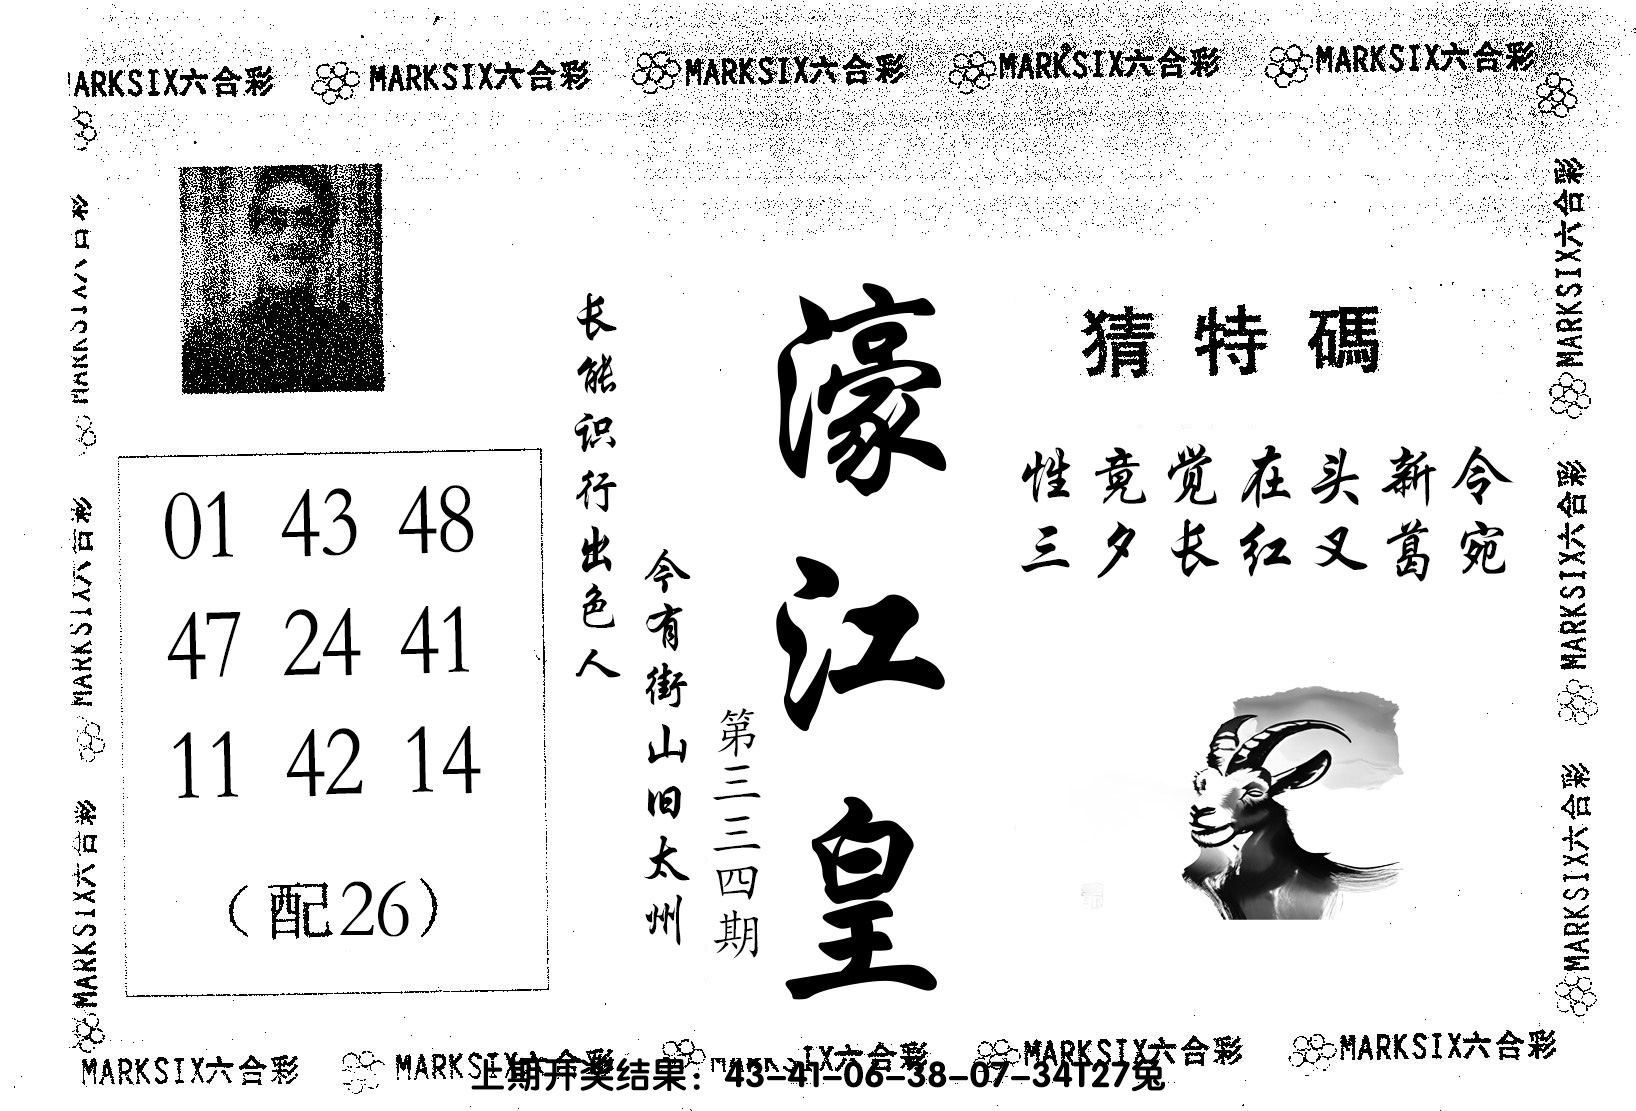 MARKSIX六合彩 MARKSIX六合彩 MARKSIX六合彩 MARKSIX六合彩 MARKSIX六合彩
猜特碼
性竟觉在头新令
三夕长红叉葛宛
濠江皇
第三三四期
今有街山旧太州
长能识行出色人
01 43 48
47 24 41
11 42 14
（配26）
MARKSIX六合彩
MARKSIX六合彩
MARKSIX六合彩
MARKSIX六合彩
MARKSIX六合彩
MARKSIX六合彩
MARKSIX六合彩 MARKSIX六合彩 IX六合彩 MARKSIX六合彩 MARKSIX六合彩
上期开奖结果：43-41-06-38-07-34T27兔